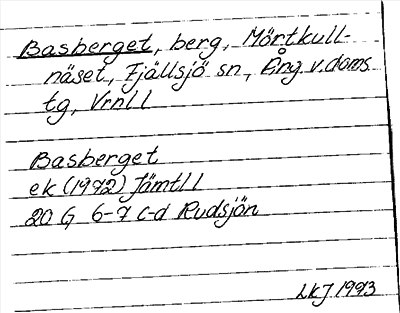 Basberget, berg, Mörtkull-
näset, Fjällsjö sn, Ång. v. doms
tg, Vrnll
Basberget
ek (1972) Jämtll
20 G 6-7 c-d Rudsjön
LKJ 1993